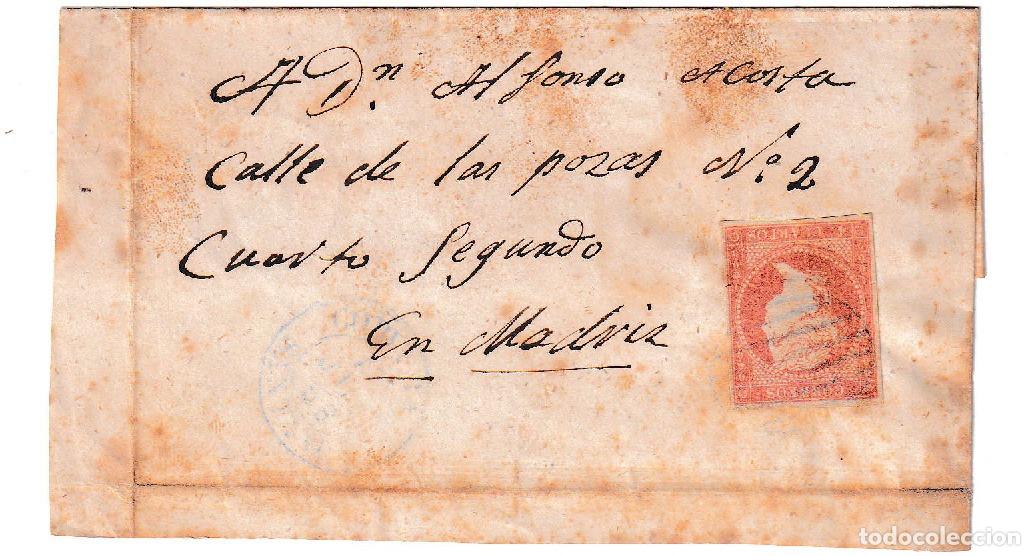 A Dn. Alfonso Acosta
Calle de las pozas No. 2
Cuarto Segundo
En Madrid
CORREOS
todocoleccion